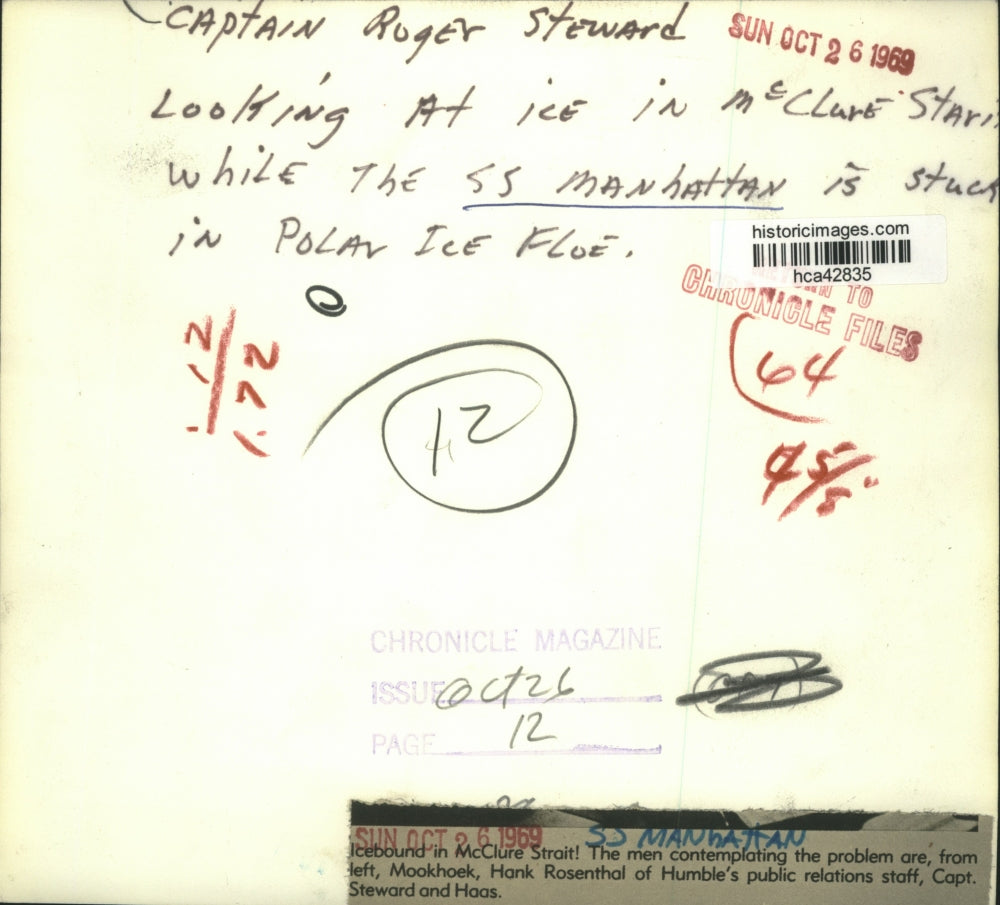 CAPTAIN ROGER STEWARD
SUN OCT 26 1969
LOOKING At icE iN McCLURE StARi
WhiLE ThE SS MANhAttAN iS Stuck
iN POLAR ICE FLOE.
historicimages.com
hca42835
RETURN TO
CHRONICLE FILES
.12
1.72
64
12
45/8"
CHRONICLE MAGAZINE
ISSUE Oct 26
PAGE 12
SUN OCT 26 1969 SS MANhAttAN
Icebound in McClure Strait! The men contemplating the problem are, from
left, Mookhoek, Hank Rosenthal of Humble's public relations staff, Capt.
Steward and Haas.